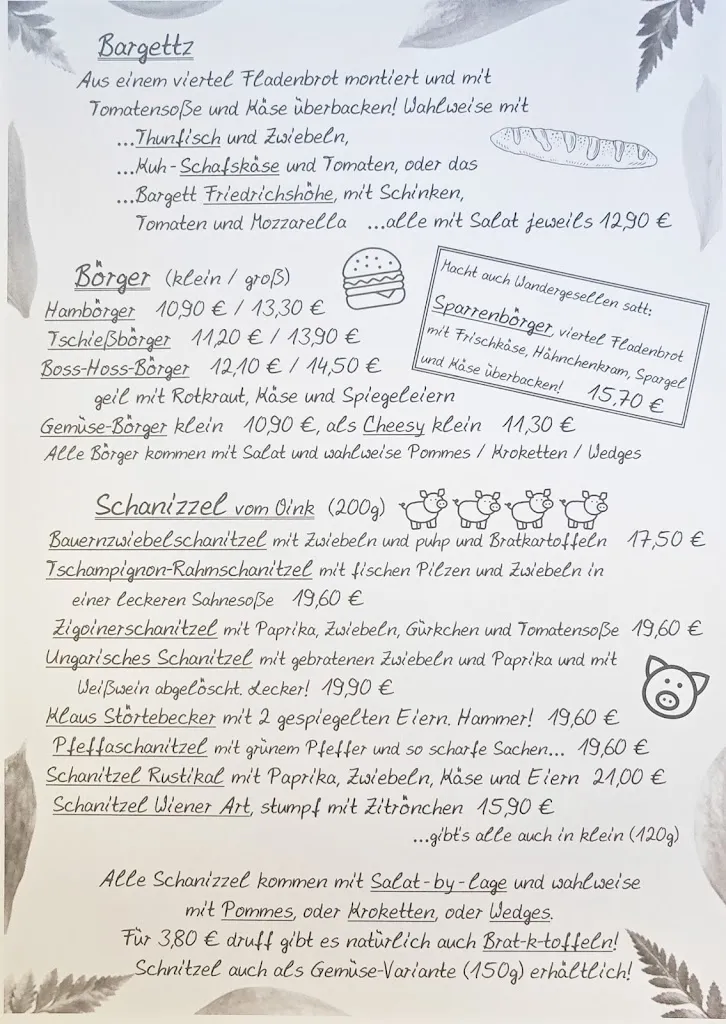 Bargettz
Aus einem viertel Fladenbrot montiert und mit
Tomatensoße und Käse überbacken! Wahlweise mit
...Thunfisch und Zwiebeln,
...Kuh-Schafskäse und Tomaten, oder das
...Bargett Friedrichshöhe, mit Schinken,
Tomaten und Mozzarella ...alle mit Salat jeweils 12,90 €
Börger (klein / groß)
Hambörger 10,90 € / 13,30 €
Tschießbörger 11,20 € / 13,90 €
Boss-Hoss-Börger 12,10 € / 14,50 €
geil mit Rotkraut, Käse und Spiegeleiern
Gemüse-Börger klein 10,90 €, als Cheesy klein 11,30 €
Alle Börger kommen mit Salat und wahlweise Pommes / Kroketten / Wedges
Macht auch Wandergesellen satt:
Sparrenbörger, viertel Fladenbrot
mit Frischkäse, Hähnchenkram, Spargel
und Käse überbacken! 15,70 €
Schanizzel vom Oink (200g)
Bauernzwiebelschanitzel mit Zwiebeln und puhp und Bratkartoffeln 17,50 €
Tschampignon-Rahmschanitzel mit fischen Pilzen und Zwiebeln in
einer leckeren Sahnesoße 19,60 €
Zigoinerschanitzel mit Paprika, Zwiebeln, Gürkchen und Tomatensoße 19,60 €
Ungarisches Schanitzel mit gebratenen Zwiebeln und Paprika und mit
Weißwein abgelöscht. Lecker! 19,90 €
Klaus Störtebecker mit 2 gespiegelten Eiern. Hammer! 19,60 €
Pfeffaschanitzel mit grünem Pfeffer und so scharfe Sachen... 19,60 €
Schanitzel Rustikal mit Paprika, Zwiebeln, Käse und Eiern 21,00 €
Schanitzel Wiener Art, stumpf mit Zitrönchen 15,90 €
...gibt's alle auch in klein (120g)
Alle Schanizzel kommen mit Salat-by-lage und wahlweise
mit Pommes, oder Kroketten, oder Wedges.
Für 3,80 € druff gibt es natürlich auch Brat-k-toffeln!
Schnitzel auch als Gemüse-Variante (150g) erhältlich!